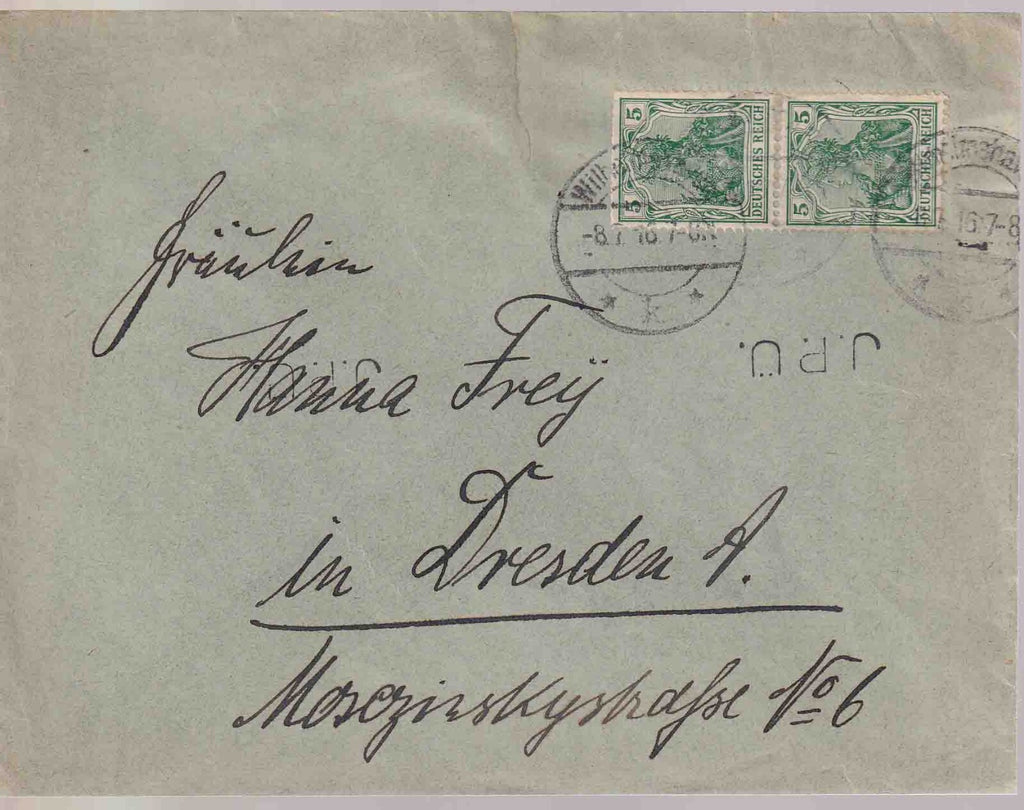 5 5 DEUTSCHES REICH
5 5 DEUTSCHES REICH
-8.7.16.7-8
16.7-8
* k *
J.P.Ü.
J.P.
Fräulein
Hanna Freÿ
in Dresden A.
Mosczinskystraße No 6